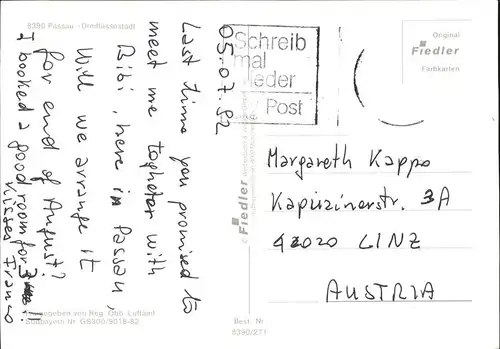 8390 Passau - Dreiflüssestadt
05.07.82
Last time you promised to
meet me togheter with
Bibi, here in Passau,
Will we arrange it
for end of August?
I booked a good room for 3
Kisses Franco
Schreib
mal
wieder
Post
Original
Fiedler
Farbkarten
© Fiedler
Margareth Kappo
Kapuzinerstr. 3A
42020 LINZ
AUSTRIA
Freigegeben von Reg. Obb. Luftamt
Südbayern Nr. GS300/9018-82
Best. Nr.
8390/271